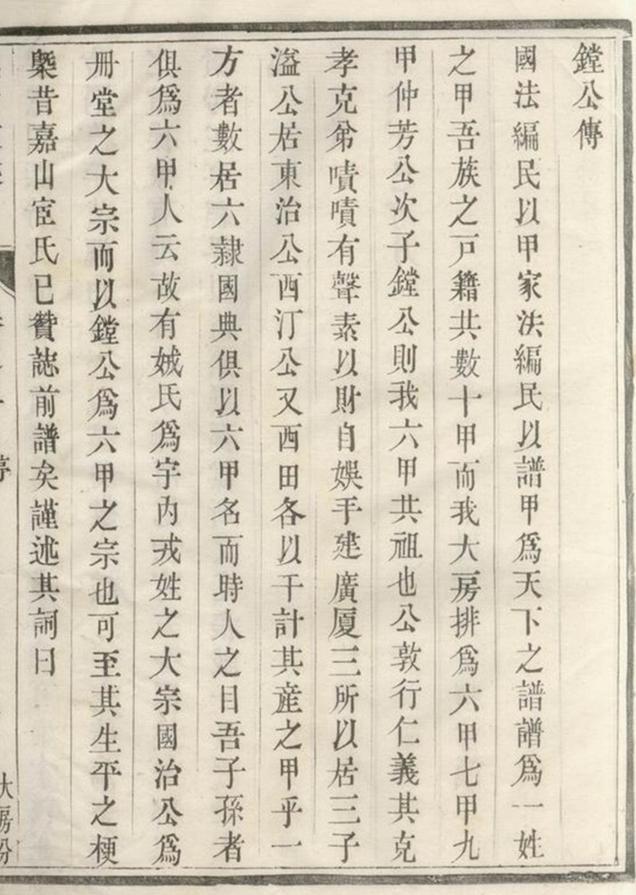 鏜公傳
國法編民以甲家法編民以譜甲為天下之譜譜為一姓
之甲吾族之戸籍共數十甲而我大房排為六甲七甲九
甲仲芳公次子鏜公則我六甲共祖也公敦行仁義其克
孝克弟嘖嘖有聲素以財自娛手建廣厦三所以居三子
溢公居東治公西汀公又西田各以千計其産之甲乎一
方者數居六隷國典俱以六甲名而時人之目吾子孫者
俱為六甲人云故有娀氏為宇內戎姓之大宗國治公為
冊堂之大宗而以鏜公為六甲之宗也可至其生平之梗
槩昔嘉山宦氏已贊誌前譜矣謹述其詞曰
大房份